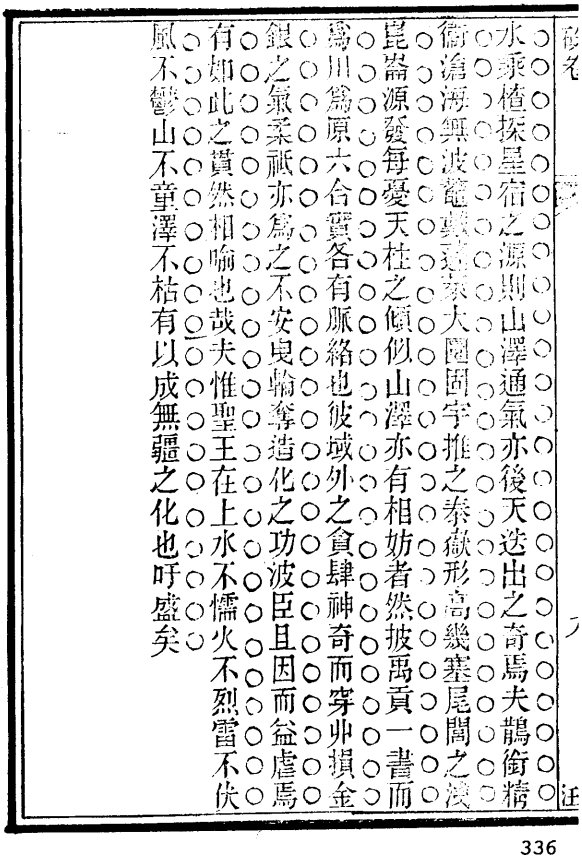 硃卷 八 汪
水乘楂探星宿之源則山澤通氣亦後天迭出之奇焉夫鵲銜精
衞滄海無波鼇戴蓬萊大圜固宇推之泰嶽形高幾塞尾閭之洩
崑崙源發每憂天柱之傾似山澤亦有相妨者然披禹貢一書而
爲川爲原六合實各有脈絡也彼域外之貪肆神奇而穿丱損金
銀之氣柔祇亦爲之不安曳輪奪造化之功波臣且因而益虐焉
有如此之貫然相喻也哉夫惟聖王在上水不懦火不烈雷不伏
風不鬱山不童澤不枯有以成無疆之化也吁盛矣
336